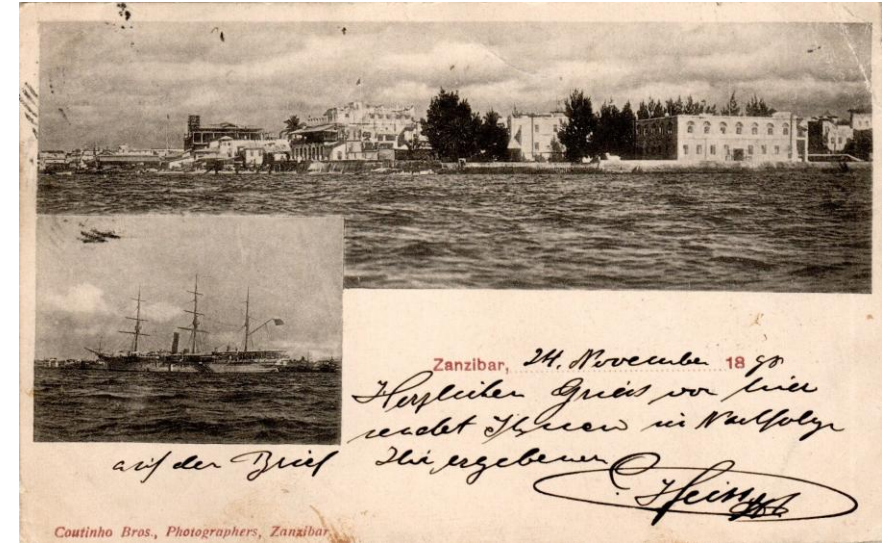 Zanzibar, 24. November 1898
Herzlichen Gruß von hier
sendet Ihnen in Nachfolge
auf den Brief Ihr ergebener
C.
Coutinho Bros., Photographers, Zanzibar